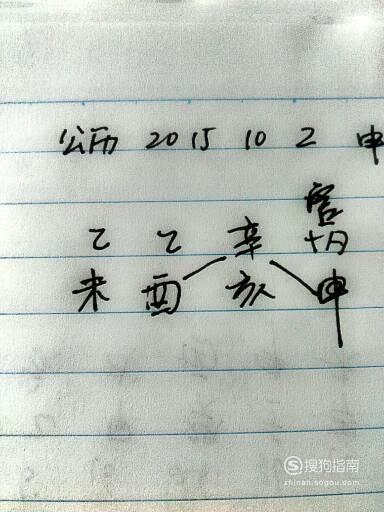 公历 2015 10 2 申
乙 乙 辛
未 酉 亥 申
搜狗指南
zhinan.sogou.com